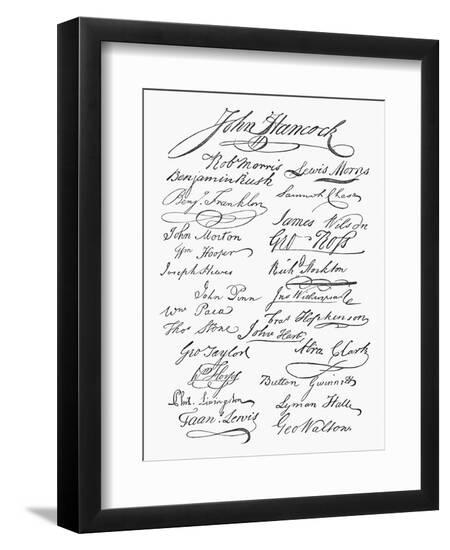 John Hancock
Rob Morris Lewis Morris
Benjamin Rush
Benj. Franklin Samuel Chase
James Wilson
John Morton Geo Ross
Wm Hooper
Joseph Hewes Rich Stockton
John Penn Jno Witherspoon
Wm Paca Fras Hopkinson
Thos Stone John Hart
Geo Taylor Abra Clark
Wm Floyd Button Gwinnett
Phil. Livingston Lyman Hall
Fran. Lewis Geo Walton